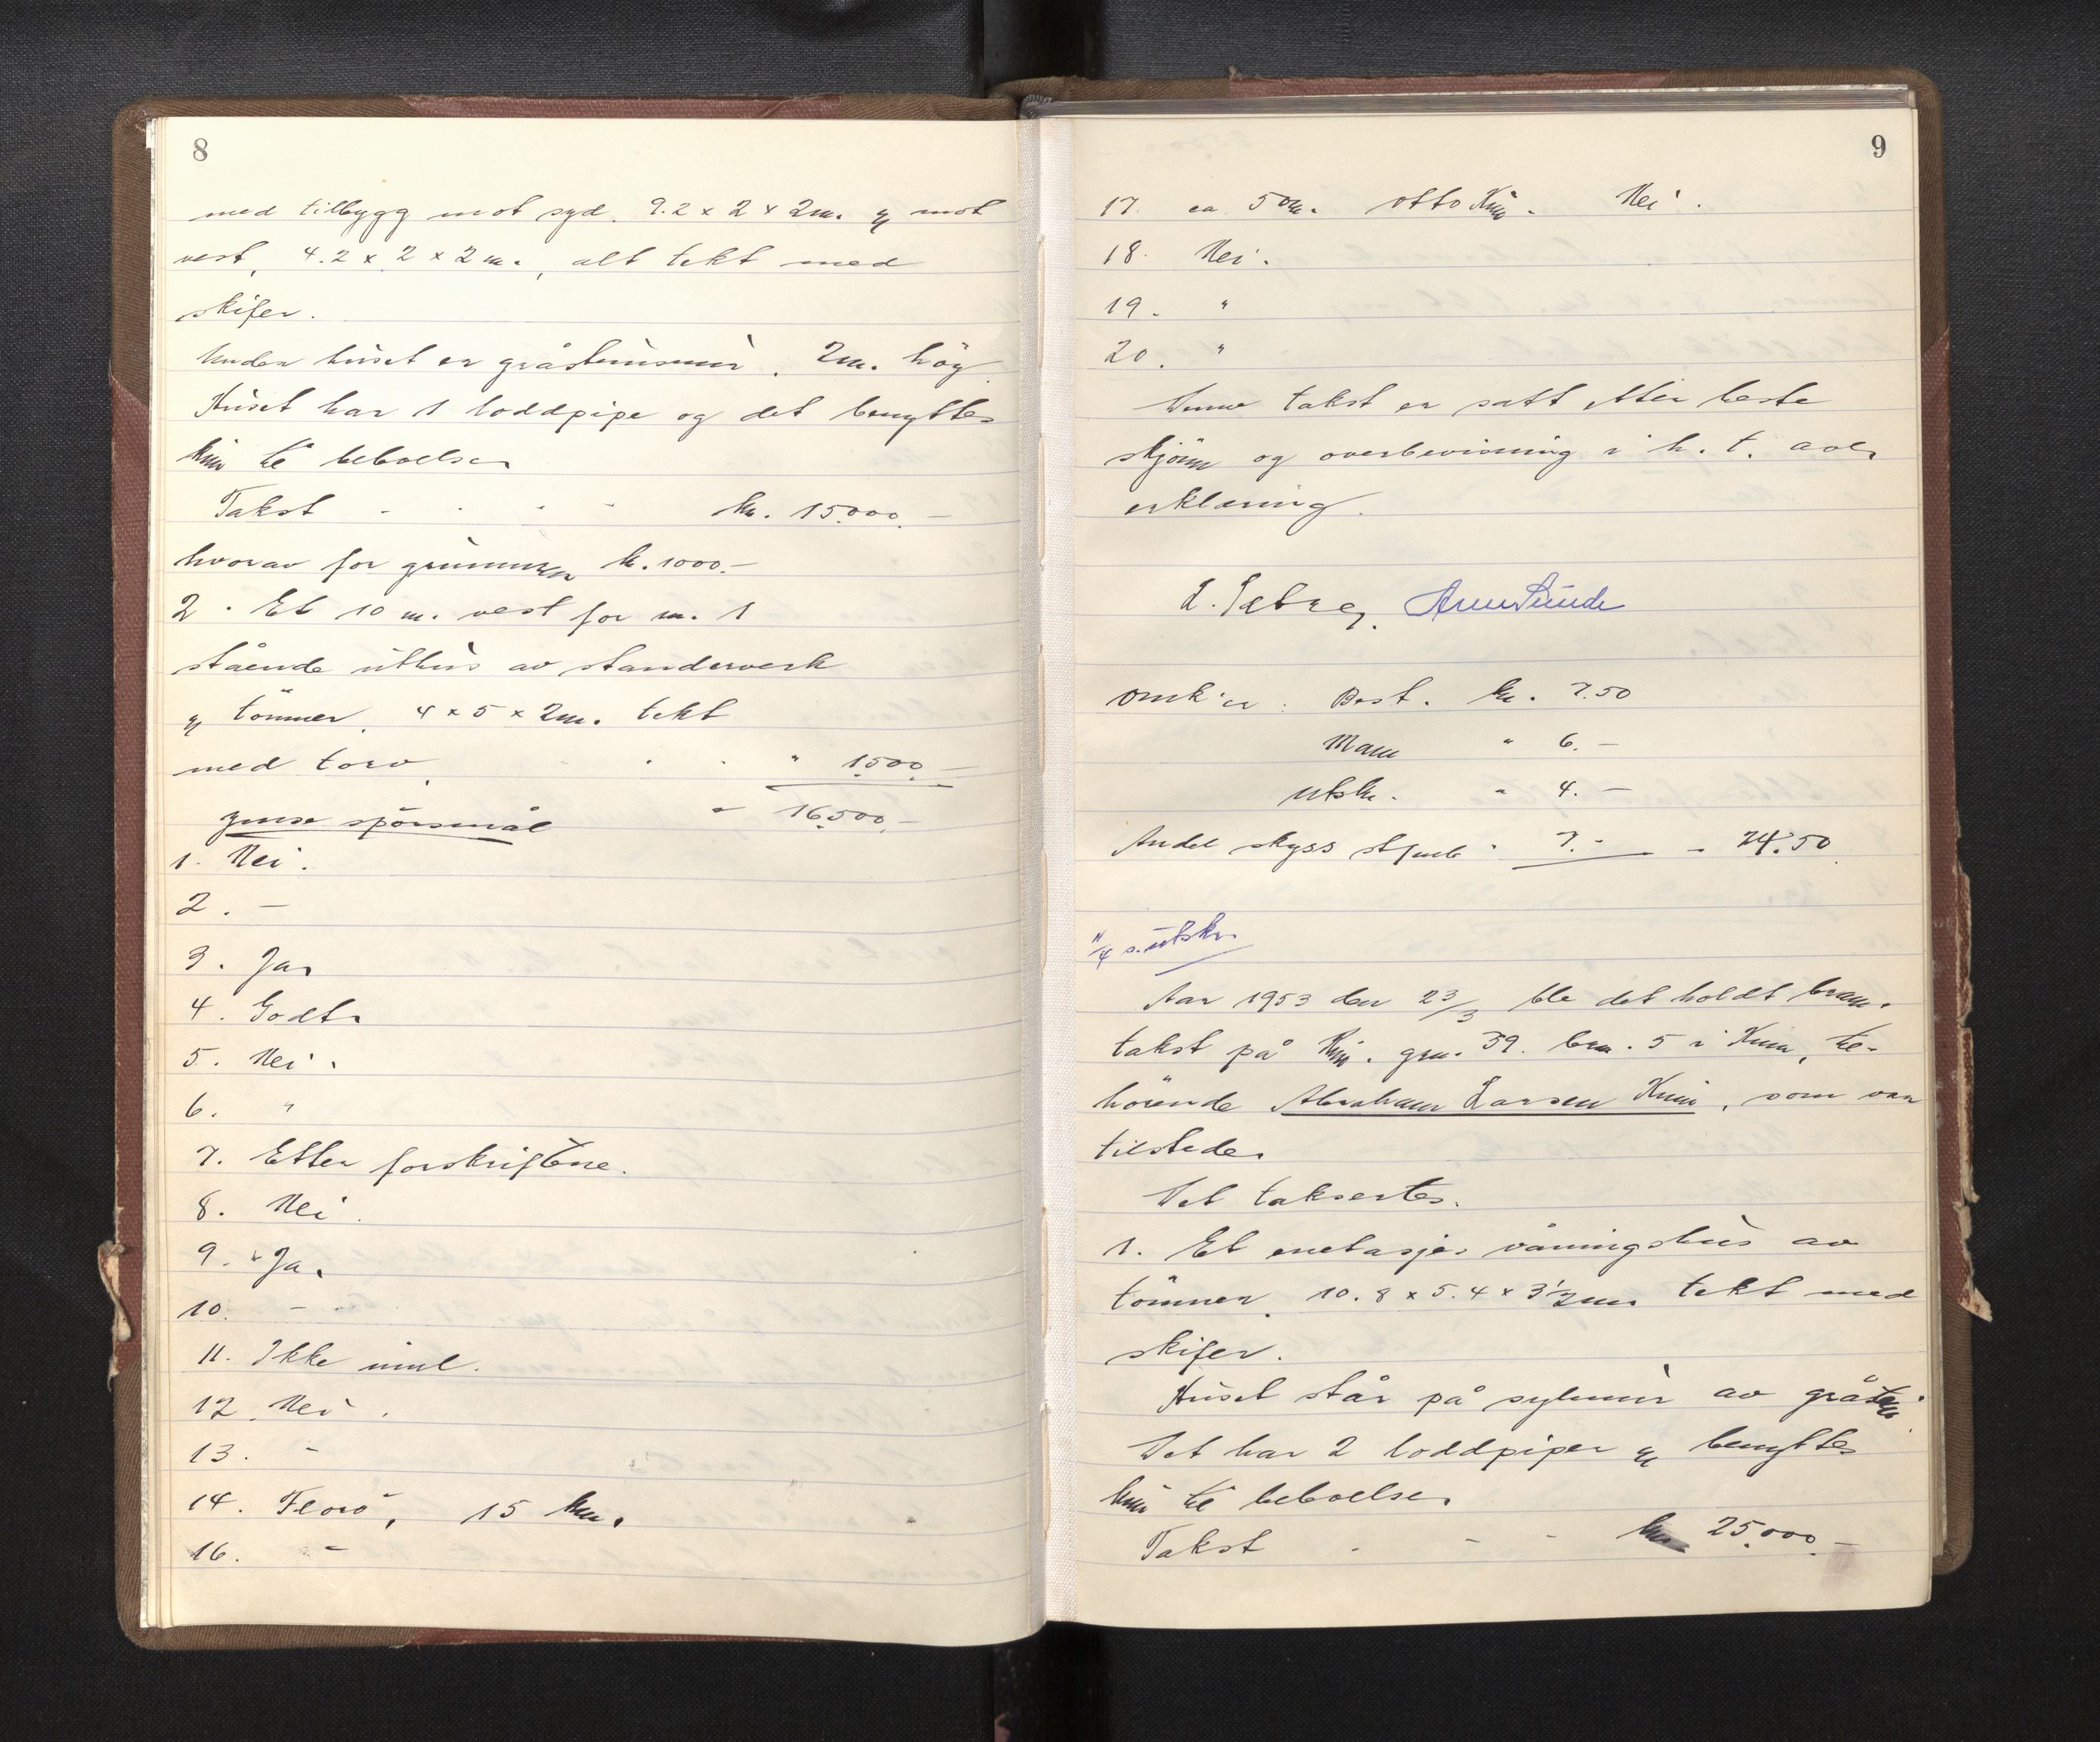 8
med tilbygg mot syd. 9.2 x 2 x 2m. og mot
vest, 4.2 x 2 x 2 m., alt tekt med
skifer.
Under huset er gråsteinsmur, 2m. høy.
Huset har 1 loddpipe og det benyttes
kun til beboelse.
Takst - - - - kr. 15.000.-
hvorav for grunnmuren kr. 1000.-
2. Et 10 m. vest for nr. 1
stående uthus av standerverk
og tømmer, 4 x 5 x 2m. tekt
med torv, - - - " 1500.-
" 16500.-
spørsmål
1. Nei.
2. -
3. Ja.
4. Godt.
5. Nei.
6. "
7. Etter forskriftene.
8. Nei.
9. Ja.
10. -
11. Ikke innl.
12. Nei.
13. -
14. Florø, 15 km.
16. -
9
17. ca 50m. Otto Nei.
18. Nei.
19. "
20. "
Denne takst er satt etter beste
skjønn og overbevisning i h. t. avl.
erklæring.
Omk'er: Best. kr. 7.50
Mann " 6.-
Utskr. " 4.-
Andel skyss " 7.- - 24.50
11/4 s. utskr.
Aar 1953 den 23/3 ble det holdt brann-
takst på gnr. 39. bnr. 5 i Kinn, til-
hørende Abraham Larsen, som var
tilstede.
Det taksertes.
1. Et enetasjes våningshus av
tømmer, 10.8 x 5.4 x 3½m. tekt med
skifer.
Huset står på sylmur av gråstein.
Det har 2 loddpiper og benyttes
kun til beboelse.
Takst - - - kr. 25.000.-